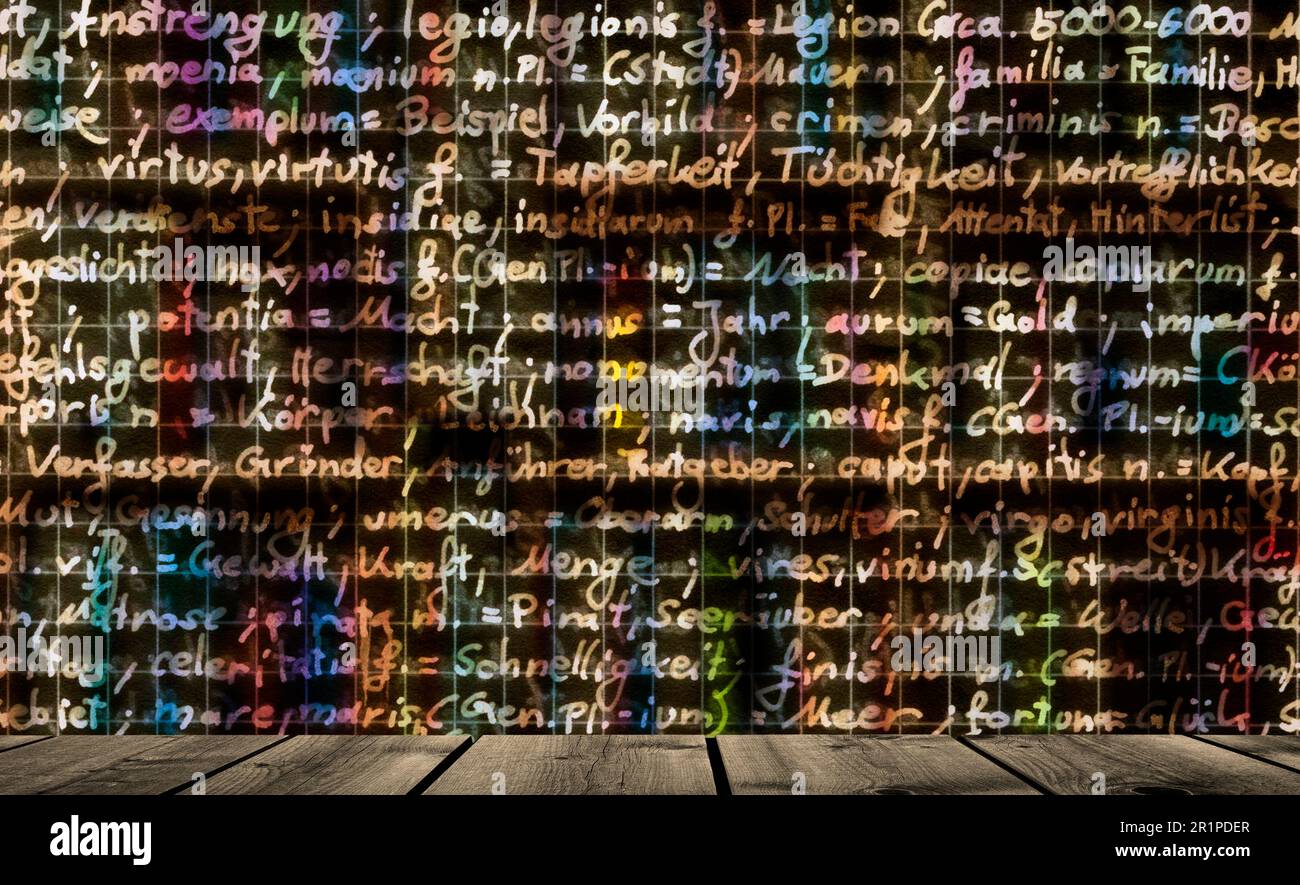 t, Anstrengung ; legio, legionis f. = Legion Cca. 5000-6000 M
dat ; moenia, moenium n. Pl. = (Stadt) Mauern ; familia = Familie, H
weise ; exemplum = Beispiel, Vorbild ; crimen, criminis n. = Besc
n ; virtus, virtutis f. = Tapferkeit, Tüchtigkeit, Vortrefflichkei
en, Verdienste ; insidiae, insidiarum f. Pl. = Falle, Attentat, Hinterlist ;
ngesicht ; nox, noctis f. (Gen. Pl. -ium) = Nacht ; copiae, copiarum f.
; potentia = Macht ; annus = Jahr ; aurum = Gold ; imperiu
efehlsgewalt, Herrschaft ; monumentum = Denkmal ; regnum = (Kö
rporis n. = Körper, Leichnam ; navis, navis f. (Gen. Pl. -ium) = Sc
Verfasser, Gründer, Anführer, Ratgeber ; caput, capitis n. = Kopf
Mut, Gesinnung ; umerus = Oberarm, Schulter ; virgo, virginis f.
ol. vi f. = Gewalt, Kraft, Menge ; vires, virium f. = (Streit) Kräf
n, Matrose ; pirata m. = Pirat, Seeräuber ; unda = Welle, Gew
; celeritatis f. = Schnelligkeit ; finis, is m. (Gen. Pl. -ium)
ebiet ; mare, maris (Gen. Pl. -ium) = Meer ; fortuna = Glück, S
alamy
Image ID: 2R1PDER
www.alamy.com